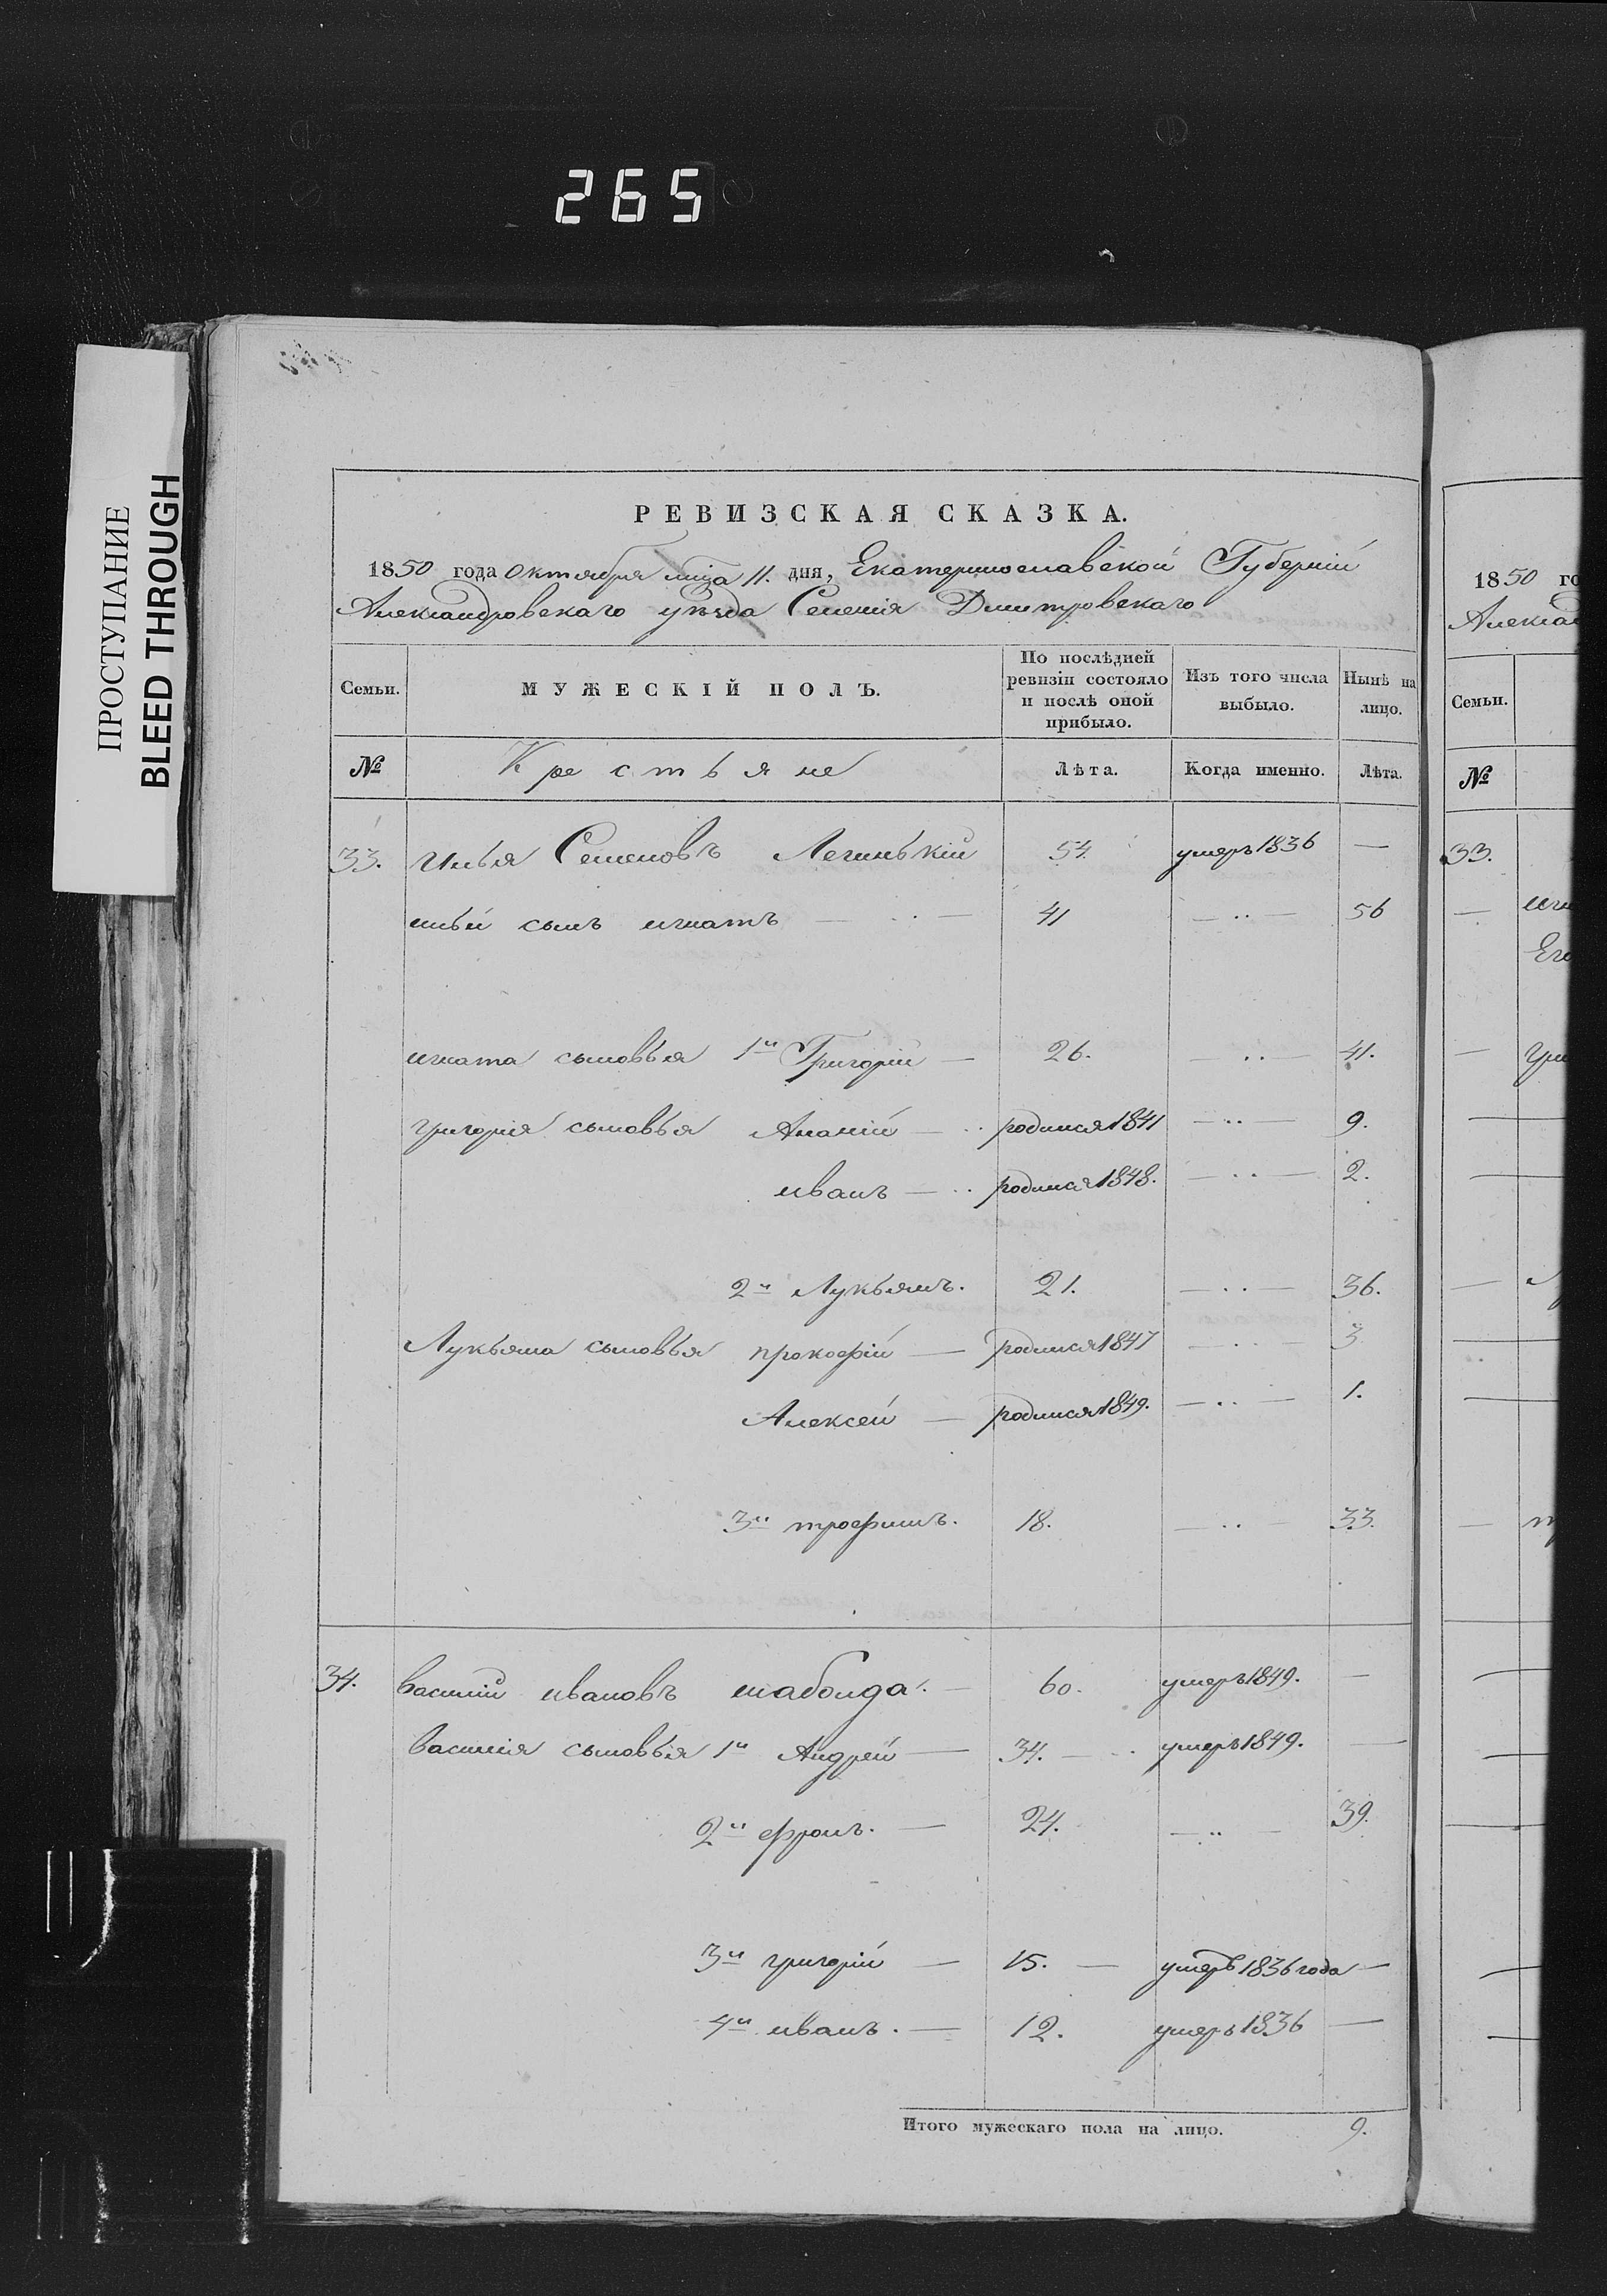 265
ПРОСТУПАНИЕ
BLEED THROUGH
РЕВИЗСКАЯ СКАЗКА.
1850 года Октября мца 11. дня, Екатеринославской Губерніи
Александровскаго уѣзда Селенія Дмитровскаго
Семьи. МУЖЕСКІЙ ПОЛЪ. По послѣдней ревизіи состояло и послѣ оной прибыло. Изъ того числа выбыло. Нынѣ на лицо.
№ Крестьяне Лѣта. Когда именно. Лѣта.
33. Илья Семеновъ Легинькій 54. умеръ 1836 —
ильи сынъ игнатъ — · — 41 — ·· — 56
игната сыновья 1й Григорій — 26. — ·· — 41.
григорія сыновья Ананій — ·· родился 1841 — ·· — 9.
иванъ — ·· родился 1848. — ·· — 2.
2й Лукьянъ. 21. — ·· — 36.
Лукьяна сыновья прокофій — родился 1847 — ·· — 3
Алексей — родился 1849. — ·· — 1.
3й трофимъ. 18. — ·· — 33.
34. василій ивановъ шаболда. — 60. умеръ 1849. —
василія сыновья 1й Андрей — 34. — ·· умеръ 1849. —
2й фролъ. — 24. — ·· — 39.
3й григорій — 15. — умеръ 1836 года —
4й иванъ. — 12. умеръ 1836 —
Итого мужескаго пола на лицо. 9.
1850 го
Алексан
Семьи.
№
33.
игн
Его
гри